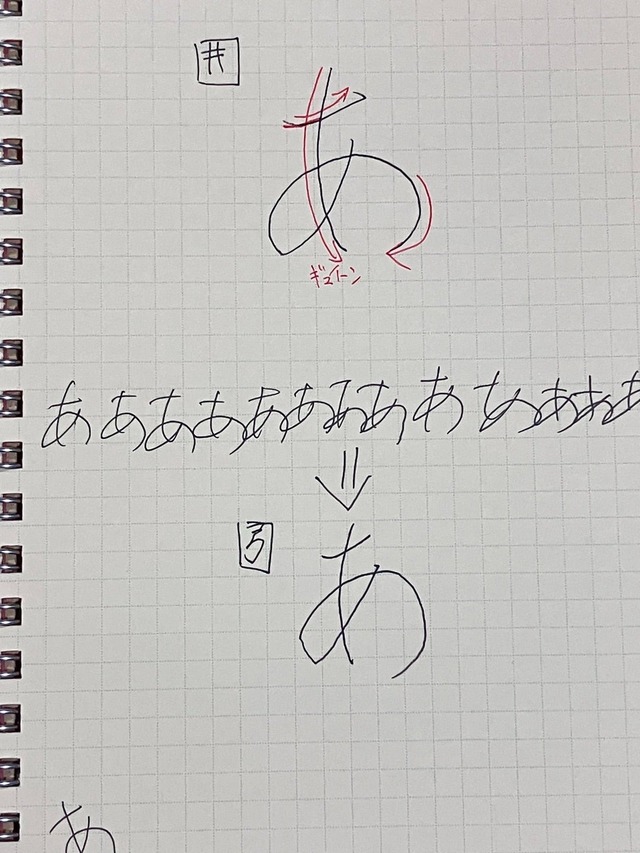 井
あ
ギュイーン
あああああああああああああ
あ
あ